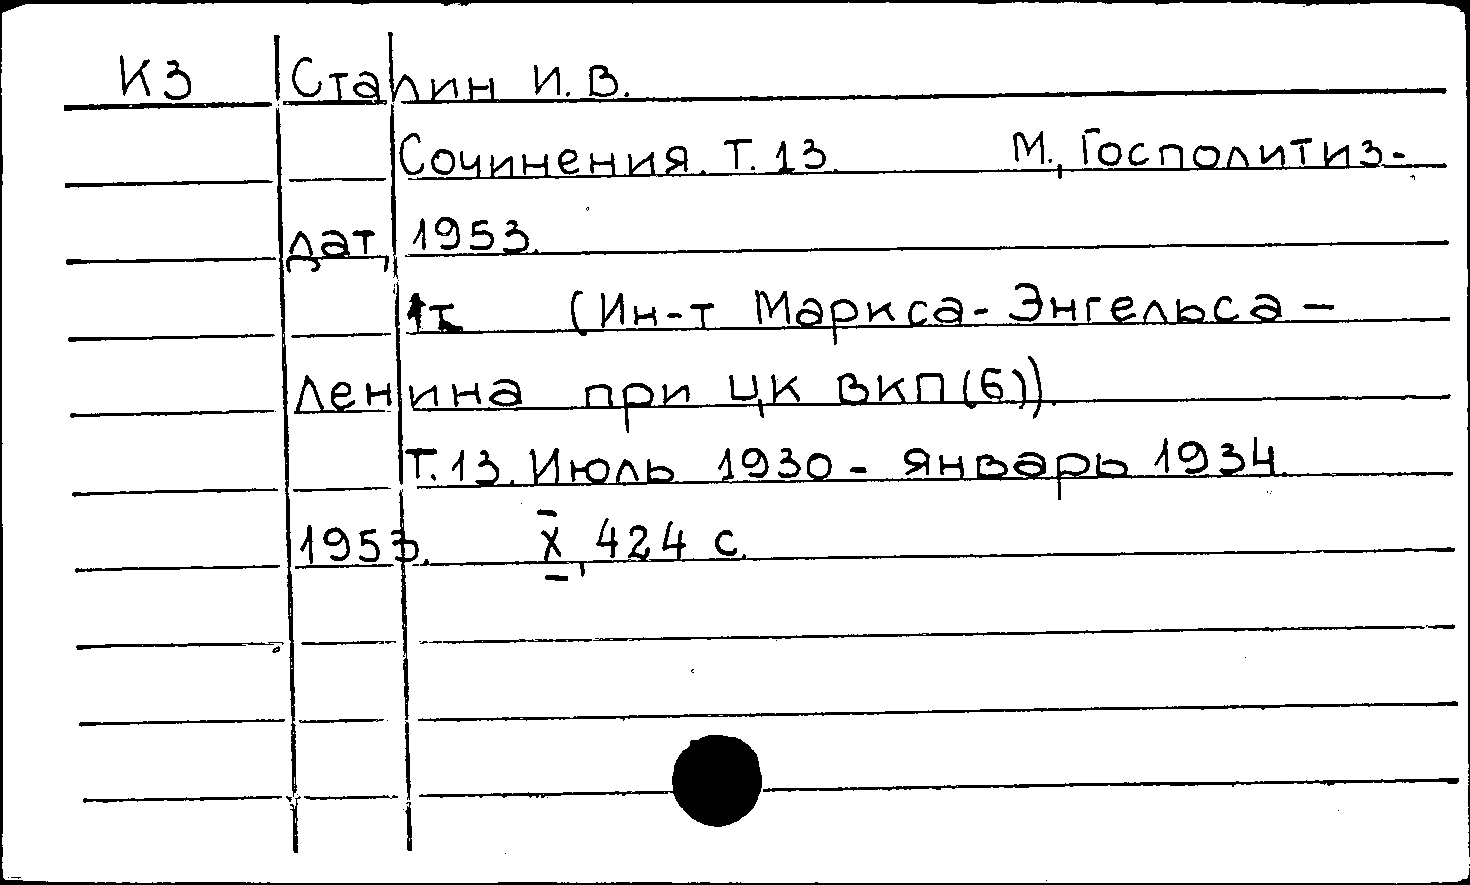 К3 Сталин И. В.
Сочинения. Т. 13. М., Госполитиз-
дат, 1953.
1т. (Ин-т Маркса-Энгельса –
Ленина при ЦК ВКП(б)).
Т. 13. Июль 1930 - январь 1934.
1953. X, 424 с.